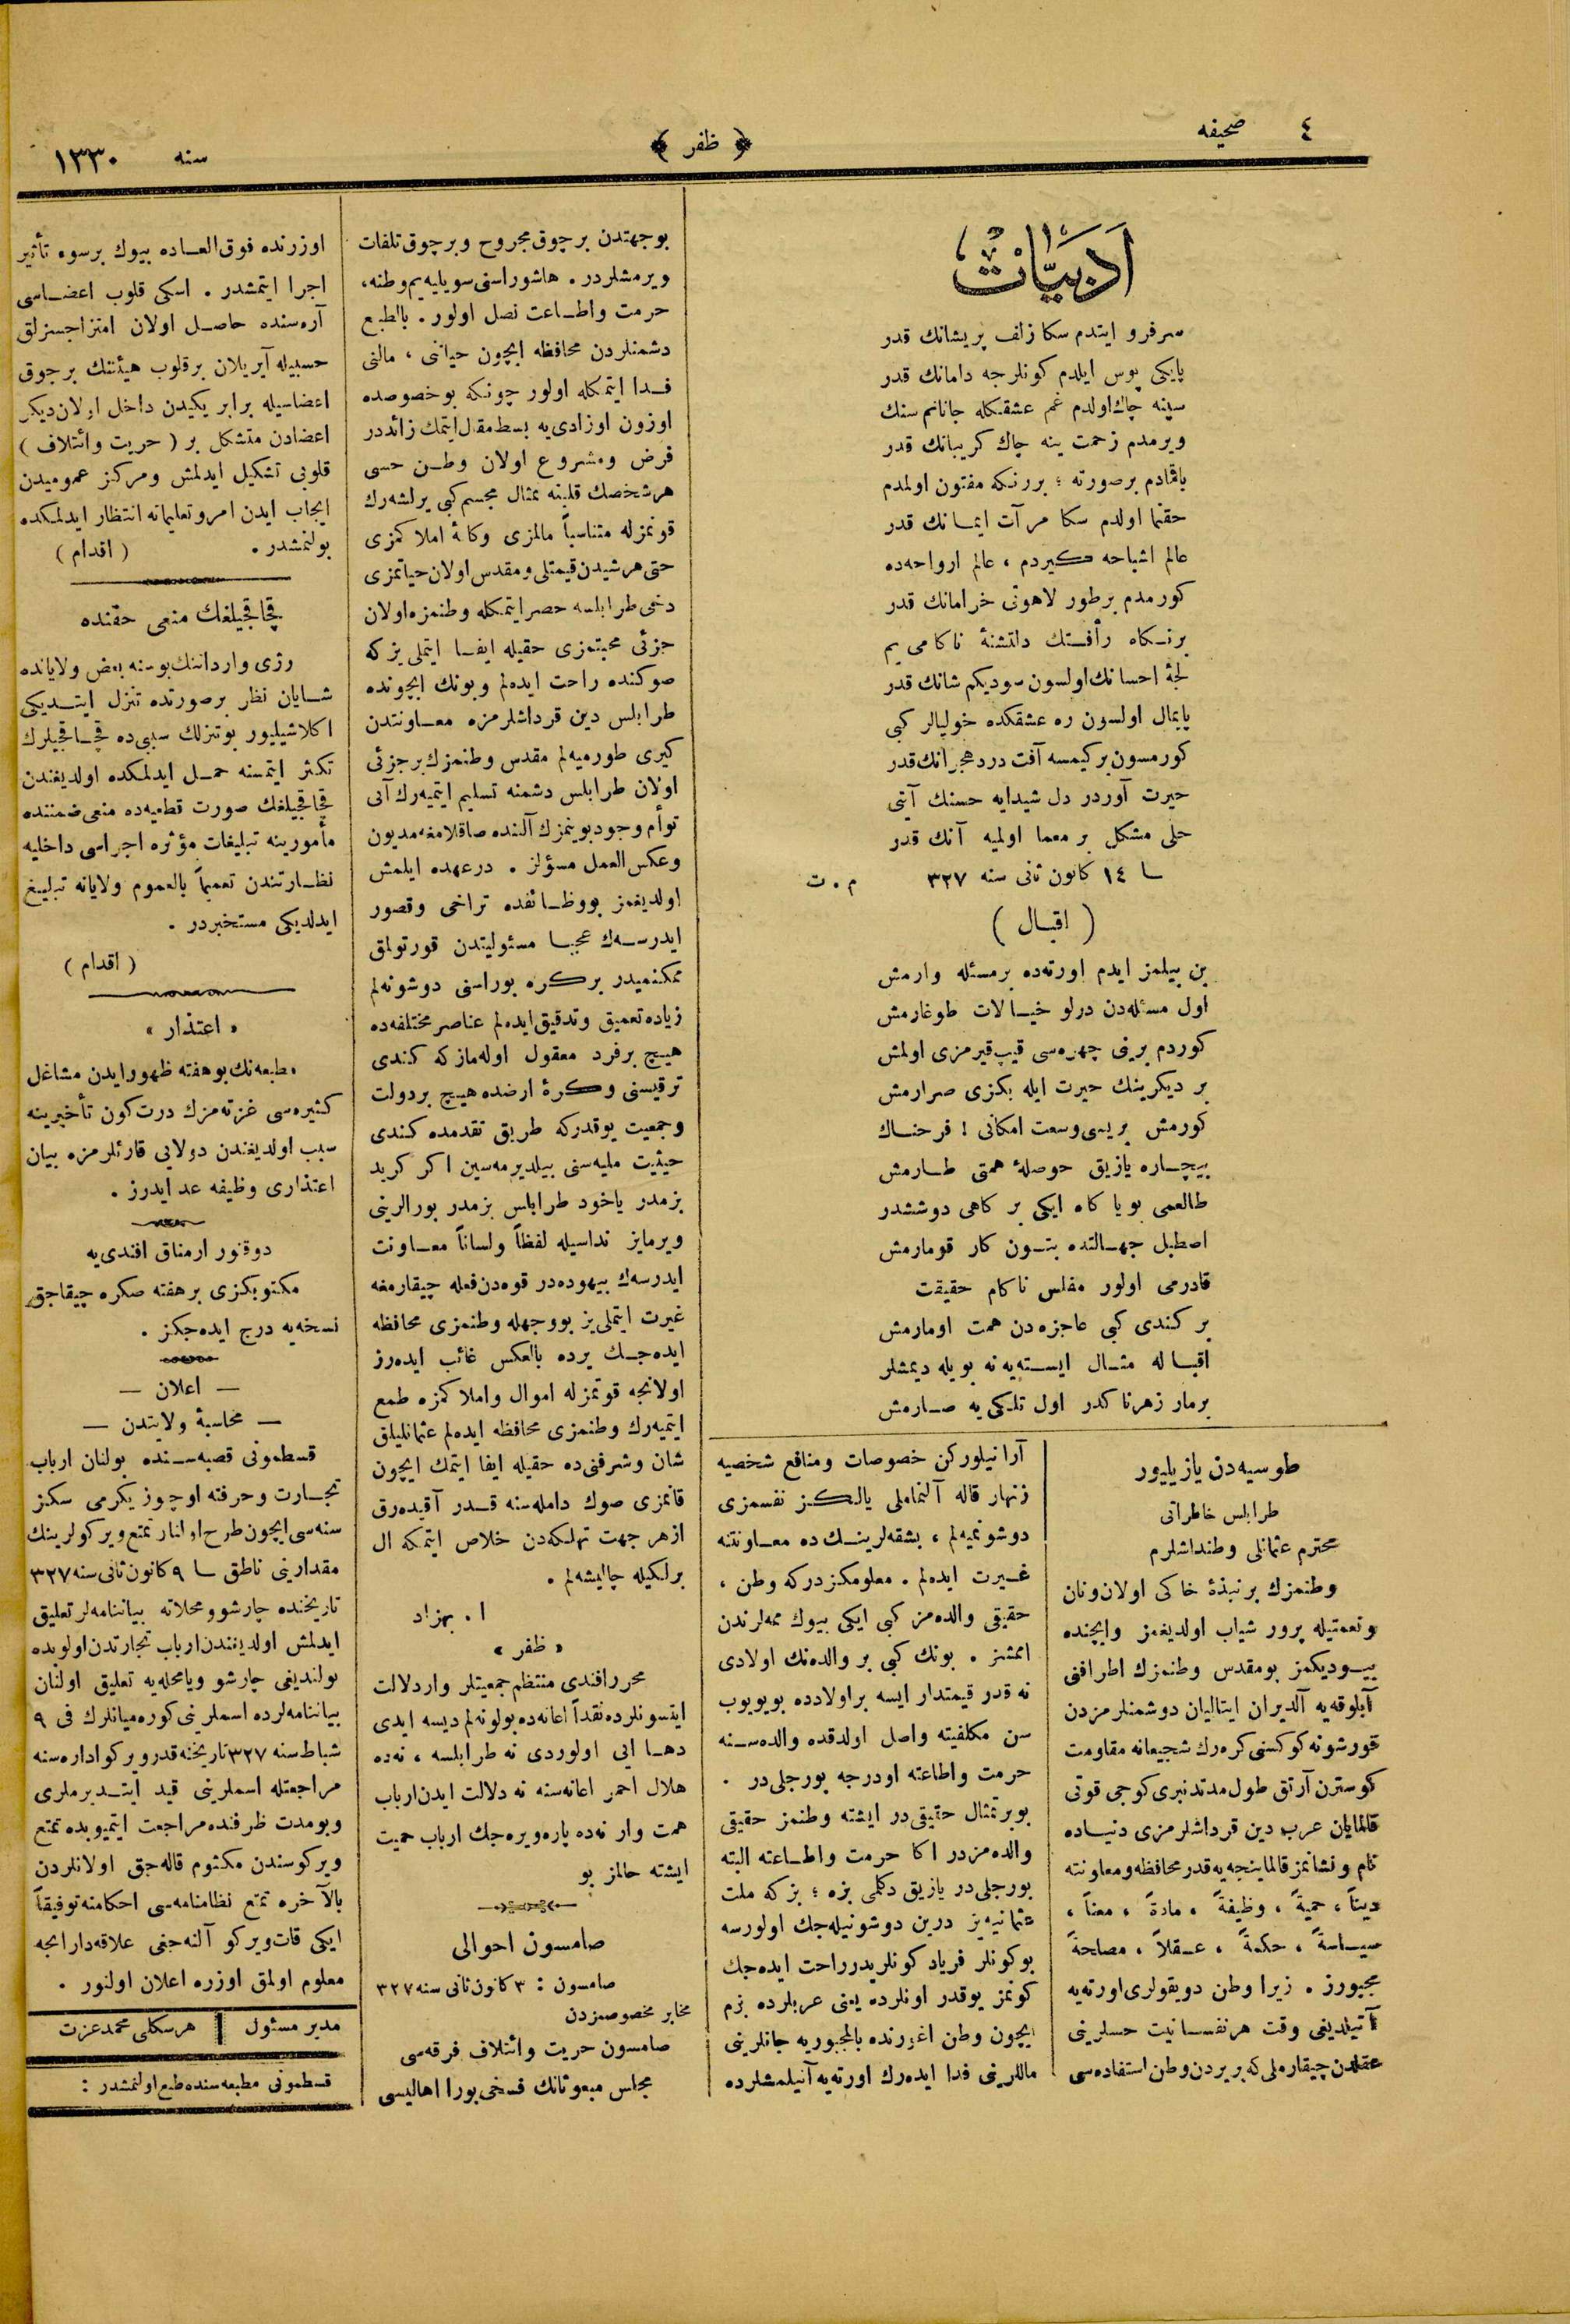 ٤ صحیفه
﴿ ظفر ﴾
سنه ١٣٣٠
ادبیات
سرفرو ایتدم سکا زلف پریشانك قدر
پایکی بوس ایلدم کونلرجه دامانك قدر
سینه چاك اولدم غم عشقکله جانانم سنك
ویرمدم زحمت ینه چاك کریبانك قدر
باقادم برصورته ؛ بررنکه مفتون اولمدم
حقنما اولدم سکا مرآت ایمانك قدر
عالم اشباحه کیردم ، عالم ارواحه‌ده
کورمدم برطور لاهوتی خرامانك قدر
برنکاه رأفتك دلتشنۀ ناکامی یم
لجۀ احسانك اولسون سودیکم شانك قدر
پایمال اولسون ره عشقکده خولیالر کبی
کورمسون برکیمسه آفت درد هجرانك قدر
حیرت آوردر دل شیدایه حسنك آنی
حلی مشکل بر معما اولمیه آنك قدر
١٤ کانون ثانی سنه ٣٢٧ م . ت
( اقبال )
بن بیلمز ایدم اورته‌ده برمسئله وارمش
اول مسئله‌دن درلو خیالات طوغارمش
کوردم برینی چهره‌سی قیپ قیرمزی اولمش
بر دیکرینك حیرت ایله بکزی صرارمش
کورمش بریسی وسعت امکانی ! فرحناك
بیچاره یازیق حوصلۀ همتی طارمش
طالعمی بویا کاه ایکی بر کاهی دوششدر
اصطبل جهالتده بتون کار قومارمش
قادرمی اولور مفلس ناکام حقیقت
بر کندی کبی عاجزه‌دن همت اومارمش
اقباله مثال ایسته‌یه‌نه بویله دیمشلر
برمار زهرناکدر اول تلکی یه صارمش
طوسیه‌دن یازیلیور
طرابلس خاطراتی
محترم عثمانلی وطنداشلرم
وطنمزك برنبذۀ خاکی اولان ونان
ونعمتیله پرور شیاب اولدیغمز وایچنده
بیودیکمز بومقدس وطنمزك اطرافنی
آبلوقه‌یه آلدیران ایتالیان دوشمنلرمزدن
قورشونه کوکسنی کره‌رك شجیعانه مقاومت
کوسترن آرتق طول مدتدنبری کوجی قوتی
قالمایان عرب دین قرداشلرمزی دنیاده
نام ونشانمز قالماینجه‌یه قدر محافظه ومعاونته
دیناً ، حمیةً ، وظیفةً ، مادةً ، معناً ،
سیاسةً ، حکمةً ، عقلاً ، مصلحةً
مجبورز . زیرا وطن دویقولری اورته‌یه
آتیلدیغی وقت هرنفسانیت حسلرینی
عقلدن چیقارملی که بریردن وطن استفاده‌سی
آرانیلورکن خصوصات ومنافع شخصیه
زنهار قاله آلنماملی یالکز نفسمزی
دوشونمیه‌لم ، بشقه‌لرینك ده معاونتنه
غیرت ایده‌لم . معلومکزدرکه وطن ،
حقیقی والده‌مز کبی ایکی بیوك ممه‌لرندن
اممشز . بونك کبی بر والده‌نك اولادی
نه قدر قیمتدار ایسه براولادده بویوبوب
سن مکلفیته واصل اولدقده والده‌سنه
حرمت واطاعته اودرجه بورجلی‌در .
بوبرتمثال حقیقی‌در ایشته وطنمز حقیقی
والده‌مزدر اکا حرمت واطاعته البته
بورجلی‌در یازیق دکلمی بزه ؛ بزکه ملت
عثمانیه‌یز درین دوشونیله‌جك اولورسه
بوکونلر فریاد کونلریدر راحت ایده‌جك
کونمز یوقدر اونلرده یعنی عربلرده بزم
ایچون وطن اغرنده بالمجبوریه جانلرینی
ماللرینی فدا ایده‌رك اورته‌یه آنیلمشلرده
بوجهتدن برچوق مجروح وبرچوق تلفات
ویرمشلردر . هاشوراسنی سویلیه‌یم وطنه ،
حرمت واطاعت نصل اولور . بالطبع
دشمنلردن محافظه ایچون حیاتنی ، مالنی
فدا ایتمکله اولور چونکه بوخصوصده
اوزون اوزادی‌یه بسط مقال ایتمك زائددر
فرض ومشروع اولان وطن حسی
هرشخصك قلبنه تمثال مجسم کبی یرلشه‌رك
قوتمزله متناسباً مالمزی وکافۀ املاکمزی
حتی هرشیدن قیمتلی ومقدس اولان حیاتمزی
دخی طرابلسه حصر ایتمکله وطنمزه اولان
جزئی محبتمزی حقیله ایفا ایتملی‌یز که
صوکنده راحت ایده‌لم وبونك ایچونده
طرابلس دین قرداشلرمزه معاونتدن
کیری طورمیه‌لم مقدس وطنمزك برجزئی
اولان طرابلس دشمنه تسلیم ایتمیه‌رك آنی
توأم وجود بوینمزك آلتنده صاقلامغه مدیون
وعکس العمل مسؤلز . درعهده ایلمش
اولدیغمز بووظائفده تراخی وقصور
ایدرسه‌ك عجبا مسئولیتدن قورتولمق
ممکنمیدر برکره بوراسنی دوشونه‌لم
زیاده تعمیق وتدقیق ایده‌لم عناصر مختلفه‌ده
هیچ برفرد معقول اوله‌مازکه کندی
ترقیسنی وکرۀ ارضده هیچ بردولت
وجمعیت یوقدرکه طریق تقدمده کندی
حیثیت ملیه‌سنی بیلدیرمه‌سین اکر کرید
بزمدر یاخود طرابلس بزمدر بورالرینی
ویرمایز نداسیله لفظاً ولساناً معاونت
ایدرسه‌ك بیهوده‌در قوه‌دن فعله چیقارمغه
غیرت ایتملی‌یز بووجهله وطنمزی محافظه
ایده‌جك یرده بالعکس غائب ایده‌رز
اولانجه قوتمزله اموال واملاکمزه طمع
ایتمیه‌رك وطنمزی محافظه ایده‌لم عثمانلیلق
شان وشرفنی‌ده حقیله ایفا ایتمك ایچون
قانمزی صوك دامله‌سنه قدر آقیده‌رق
ازهر جهت تهلکه‌دن خلاص ایتمکه ال
برلکیله چالیشه‌لم .
ا . بهزاد
« ظفر »
محرر افندی منتظم جمعیتلر واردلالت
ایتسونلرده نقداً اعانه‌ده بولونه‌لم دیسه ایدی
دها ایی اولوردی نه طرابلسه ، نه‌ده
هلال احمر اعانه‌سنه نه دلالت ایدن ارباب
همت وار نه‌ده پاره‌ویره‌جك ارباب حمیت
ایشته حالمز بو
صامسون احوالی
صامسون : ٣ کانون ثانی سنه ٣٢٧
مخابر مخصوصمزدن
صامسون حریت وائتلاف فرقه‌سی
مجلس مبعوثانك فسخی بورا اهالیسی
اوزرنده فوق العاده بیوك برسوء تأثیر
اجرا ایتمشدر . اسکی قلوب اعضاسی
آره‌سنده حاصل اولان امتزاجسزلق
حسبیله آیریلان برقلوب هیئتنك برچوق
اعضاسیله برابر یکیدن داخل اولان دیکر
اعضادن متشکل بر ( حریت وائتلاف )
قلوبی تشکیل ایدلمش ومرکز عمومیدن
ایجاب ایدن امروتعلیماته انتظار ایدلمکده
بولنمشدر . ( اقدام )
قچاقجیلغك منعی حقنده
رژی وارداتنك بوسنه بعض ولایاتده
شایان نظر برصورتده تنزل ایتدیکی
اکلاشیلیور بوتنزلك سببی‌ده قچاقجیلرك
تکثر ایتمسنه حمل ایدلمکده اولدیغندن
قچاقجیلغك صورت قطعیه‌ده منعی ضمننده
مأمورینه تبلیغات مؤثره اجراسی داخلیه
نظارتندن تعمیماً بالعموم ولایاته تبلیغ
ایدلدیکی مستخبردر .
( اقدام )
« اعتذار »
مطبعه‌نك بوهفته ظهور ایدن مشاغل
کثیره‌سی غزته‌مزك درت کون تأخیرینه
سبب اولدیغندن دولایی قارئلرمزه بیان
اعتذاری وظیفه عد ایدرز .
دوقتور ارمناق افندی‌یه
مکتوبکزی برهفته صکره چیقاجق
نسخه‌یه درج ایده‌جکز .
— اعلان —
— محاسبۀ ولایتدن —
قسطمونی قصبه‌سنده بولنان ارباب
تجارت وحرفته اوچوز یکرمی سکز
سنه‌سی ایچون طرح اولنان تمتع ویرکولرینك
مقدارینی ناطق ٩ کانون ثانی سنه ٣٢٧
تاریخنده چارشو ومحلاته بیاننامه‌لر تعلیق
ایدلمش اولدیغندن ارباب تجارتدن اولوبده
بولندیغی چارشو ویا محله‌یه تعلیق اولنان
بیاننامه‌لرده اسملرینی کوره‌میانلرك فی ٩
شباط سنه ٣٢٧ تاریخنه قدر ویرکو اداره‌سنه
مراجعتله اسملرینی قید ایتدیرملری
وبومدت ظرفنده مراجعت ایتمیوبده تمتع
ویرکوسندن مکتوم قاله‌جق اولانلردن
بالآخره تمتع نظامنامه‌سی احکامنه توفیقاً
ایکی قات ویرکو آلنه‌جغی علاقه‌دارانجه
معلوم اولمق اوزره اعلان اولنور .
مدیر مسئول هرسکلی محمد عزت
قسطمونی مطبعه‌سنده طبع اولنمشدر :